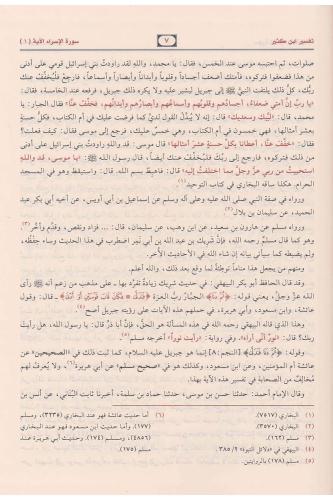 تفسير ابن كثير
٧
سورة الإسراء الآية (١)
صلوات، ثم احتبسه موسى عند الخمس، فقال: يا محمد، والله لقد راودتُ بني إسرائيل قومي على أدنى
من هذا فضعفوا فتركوه، فأمتك أضعف أجساداً وقلوباً وأبداناً وأبصاراً وأسماعاً، فارجعْ فليُخَفِّفْ عنك
ربُّك، كلّ ذلك يلتفت النبيُّ ﷺ إلى جبريل ليشير عليه ولا يكره ذلك جبريل، فرفعه عند الخامسة، فقال:
«يا ربِّ إنّ أمتي ضعفاءُ، أجسادُهم وقلوبُهم وأسماعُهم وأبصارُهم وأبدانُهم، فخفِّفْ عنّا» فقال الجبار: يا
محمد، قال: «لبَّيك وسعديك» قال: إنه لا يُبدَّل القولُ لديَّ كما فرضت عليك في أم الكتاب، فكلُّ حسنةٍ
بعشر أمثالها، فهي خمسون في أم الكتاب، وهي خمسٌ عليك، فرجع إلى موسى فقال: كيف فعلت؟
فقال: «خفَّفَ عنّا، أعطانا بكلِّ حسنةٍ عشرَ أمثالها» قال موسى: قد والله راودتُ بني إسرائيل على أدنى
من ذلك فتركوه، فارجع إلى ربك فليُخفف عنك أيضاً، قال رسول الله ﷺ: «يا موسى، قد واللهِ
استحييتُ من ربي عزَّ وجلَّ مما أختلفُ إليه» قال: فاهبِط بسم الله. قال: واستيقظ وهو في المسجد
الحرام. هكذا ساقه البخاري في كتاب التوحيد(١)
ورواه في صفة النبي صلى الله عليه وآله وسلم عن إسماعيل بن أبي أويس، عن أخيه أبي بكر عبد
الحميد، عن سليمان بن بلال(٢)
ورواه مسلم عن هارون بن سعيد، عن ابن وهب، عن سليمان، قال: ... فزاد ونقص، وقدَّم وأخَّر(٣)
وهو كما قال مسلم رحمه الله، فإن شَريك بن عبد الله بن أبي نمر اضطرب في هذا الحديث وساء حِفْظُه،
ولم يضبطه كما سيأتي بيانه إن شاء الله في الأحاديث الأُخر.
ومنهم من يجعل هذا مناماً توطئةً لما وقع بعد ذلك، والله أعلم.
وقد قال الحافظ أبو بكر البيهقي: في حديث شَريك زيادةٌ تفرَّد بها ـ على مذهب من زعم أنه ﷺ رأى
اللهَ عزَّ وجلَّ، يعني قوله: ﴿ثُمَّ دَنَا﴾ الجبَّارُ ربُّ العزة ﴿فَتَدَلَّى ۝ فَكَانَ قَابَ قَوْسَيْنِ أَوْ أَدْنَى﴾ ـ قال: وقول
عائشة، وابن مسعود، وأبي هريرة، في حملهم هذه الآيات على رؤيته جبريل أصح(٤)
وهذا الذي قاله البيهقي رحمه الله في هذه المسألة هو الحقّ، فإنَّ أبا ذرٍّ قال: يا رسول الله، هل رأيتَ
ربك؟ قال: «نورٌ أنَّى أراه». وفي رواية: «رأيت نوراً» أخرجه مسلم(٥)
وقوله: ﴿ثُمَّ دَنَا فَتَدَلَّى﴾ [النجم: ٨] إنما هو جبريل عليه السلام، كما ثبت ذلك في «الصحيحين» عن
عائشة أم المؤمنين، وعن ابن مسعود، وكذلك هو في «صحيح مسلم» عن أبي هريرة(٦)، ولا يُعرَف لهم
مُخالِفٌ من الصحابة في تفسير هذه الآية بهذا.
وقال الإمام أحمد: حدَّثنا حسن بن موسى، حدثنا حماد بن سلمة، أخبرنا ثابت البُنَاني، عن أنس بن
(١) البخاري (٧٥١٧).
(٢) البخاري (٣٥٧٠).
(٣) مسلم (١٦٢).
(٤) البيهقي في «دلائل النبوة» ٣٨٥/٢.
(٥) مسلم (١٧٨) بالروايتين.
(٦) أما حديث عائشة فهو عند البخاري (٣٢٣٥)، ومسلم
(١٧٧)، وحديث ابن مسعود فهو عند البخاري
(٤٨٥٦)، ومسلم (١٧٤). وحديث أبي هريرة عند
مسلم (١٧٥).